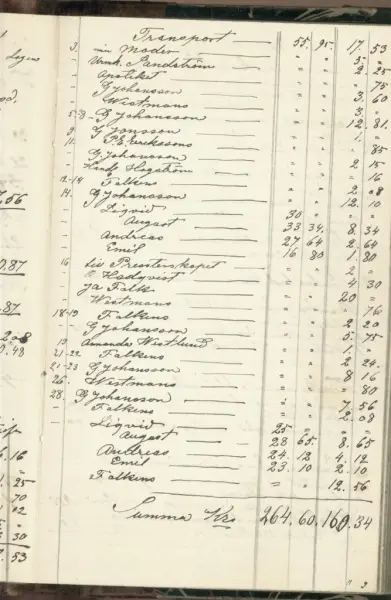 Transport — 55. 95. 17. 53
3. min Moder — " " 3. "
Sandström — " " 2. 25
Apoteket — " " " 75
G Johansson — " " 3. 60
Westmans — " " 3. "
5-8 G Johansson — " " 12. 81.
9 G Jonsson — " " 1. "
11. P.E. Ericksons — " " " 85
G Johansson — " " 2. 15
Hagström — " " " 16
12-14 Falkens — " " 2. 08
14. G Johansson — " " 12. 10
Liqvid — 30 "
August — 33 34. 8 34
Andreas — 27 64 2. 64
Emil — 16 80 1. 80
16 till Presterskapet — " " 2 "
Hedqvist — " " 4 30
Falk — " " 20 "
Westmans — " " " 76
18-19 Falkens — " " 2 20
G Johansson — " " 5. 75
19 Amanda Westlund — " " 1. "
21-22 Falkens — " " 2 24.
21-23 G Johansson — " " 8 16
26. Westmans — " " " 80
28. G Johansson — " " 7 56
Falkens — " " 2. 08
Liqvid — 25 "
August — 28 65. 8. 65
Andreas — 24. 12 4. 12
Emil — 23. 10 2. 10
Falkens — " " 12. 56
Summa Kr 264. 60. 160. 34